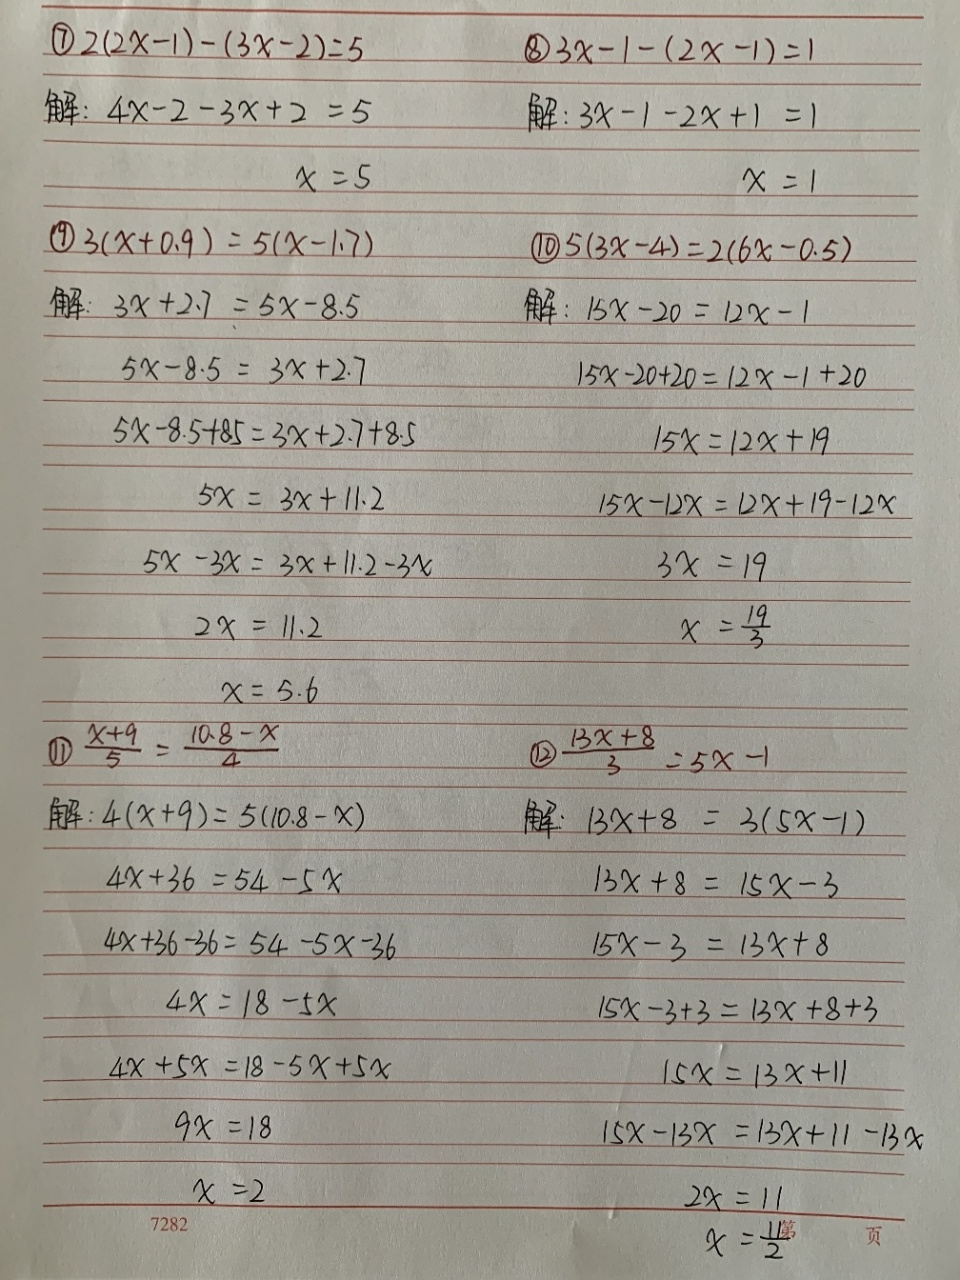 ⑦ 2(2x-1)-(3x-2)=5
解: 4x-2-3x+2 =5
x =5
⑧ 3x-1-(2x-1)=1
解: 3x-1-2x+1 =1
x =1
⑨ 3(x+0.9) = 5(x-1.7)
解: 3x+2.7 = 5x-8.5
5x-8.5 = 3x+2.7
5x-8.5+85=3x+2.7+8.5
5x = 3x+11.2
5x -3x = 3x+11.2-3x
2x = 11.2
x = 5.6
⑩ 5(3x-4)=2(6x-0.5)
解: 15x-20 = 12x-1
15x-20+20=12x-1+20
15x=12x+19
15x-12x=12x+19-12x
3x =19
x = 19/3
⑪ (x+9)/5 = (10.8-x)/4
解: 4(x+9)=5(10.8-x)
4x+36 =54-5x
4x+36-36= 54-5x-36
4x=18-5x
4x+5x=18-5x+5x
9x =18
x =2
⑫ (13x+8)/3 =5x-1
解: 13x+8 = 3(5x-1)
13x+8 = 15x-3
15x-3 =13x+8
15x-3+3 =13x+8+3
15x=13x+11
15x-13x =13x+11-13x
2x =11
x = 11/2
7282
第 页